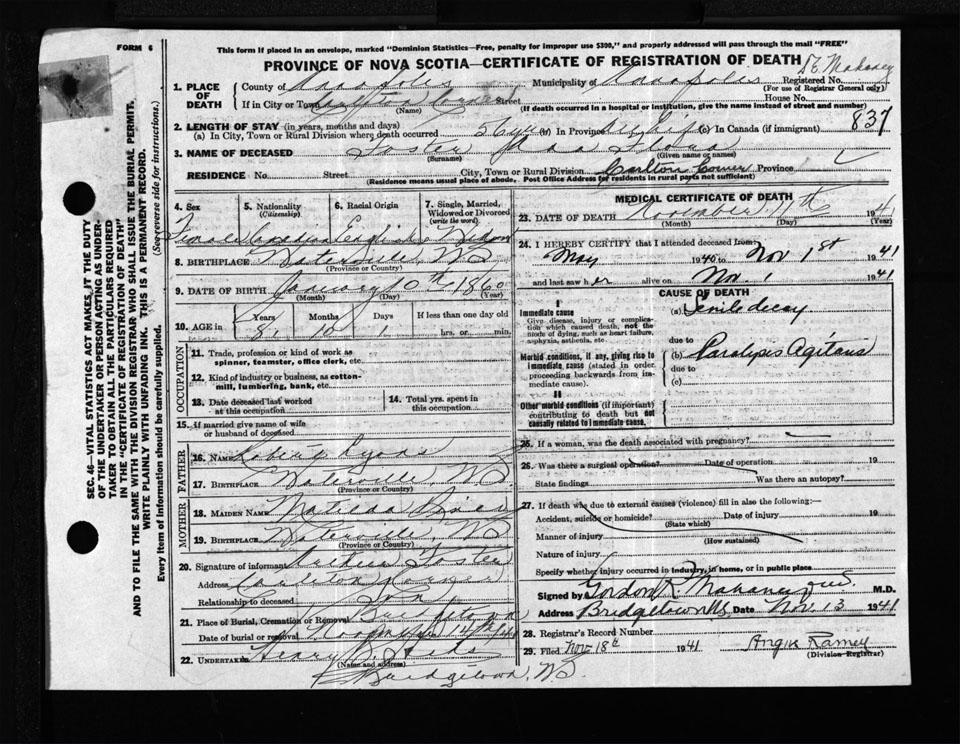 FORM 6
This form if placed in an envelope, marked "Dominion Statistics—Free, penalty for improper use $300," and properly addressed will pass through the mail "FREE"
PROVINCE OF NOVA SCOTIA—CERTIFICATE OF REGISTRATION OF DEATH
1. PLACE OF DEATH
County of Annapolis Municipality of Annapolis Registered No.
(For use of Registrar General only)
If in City or Town Street House No.
(Name) (If death occurred in a hospital or institution, give the name instead of street and number)
837
2. LENGTH OF STAY (in years, months and days)
(a) In City, Town or Rural Division where death occurred 56 yrs (b) In Province life (c) In Canada (if immigrant)
3. NAME OF DECEASED Foster Flora
(Surname) (Given name or names)
RESIDENCE No. Street City, Town or Rural Division Carlton Corner Province
(Residence means usual place of abode. Post Office Address for residents in rural parts not sufficient)
4. Sex Female
5. Nationality (Citizenship) Canadian
6. Racial Origin English
7. Single, Married, Widowed or Divorced (write the word) Widow
8. BIRTHPLACE Waterville, NS
(Province or Country)
9. DATE OF BIRTH January 10th 1860
(Month) (Day) (Year)
10. AGE in Years Months Days If less than one day old
81 10 1 hrs. or min.
OCCUPATION
11. Trade, profession or kind of work as spinner, teamster, office clerk, etc.
12. Kind of industry or business, as cotton-mill, lumbering, bank, etc.
13. Date deceased last worked at this occupation
14. Total yrs. spent in this occupation
15. If married give name of wife or husband of deceased
FATHER
16. NAME Robert
17. BIRTHPLACE Waterville, NS
(Province or Country)
MOTHER
18. MAIDEN NAME Matilda
19. BIRTHPLACE Waterville, NS
(Province or Country)
20. Signature of informant Arthur Foster
Address Carleton Corner
Relationship to deceased Son
21. Place of Burial, Cremation or Removal Bridgetown
Date of burial or removal
22. UNDERTAKER Henry B. Hicks
(Name and address)
Bridgetown, NS
MEDICAL CERTIFICATE OF DEATH
23. DATE OF DEATH November 1941
(Month) (Day) (Year)
24. I HEREBY CERTIFY that I attended deceased from:
May 1940 to Nov 1st 1941
and last saw her alive on Nov. 1 1941
CAUSE OF DEATH
I
Immediate cause (a) Senile decay
Give disease, injury or complication which caused death, not the mode of dying, such as heart failure, asphyxia, asthenia, etc.
due to
Morbid conditions, if any, giving rise to immediate cause (stated in order proceeding backwards from immediate cause).
(b) Paralysis Agitans
due to
(c)
II
Other morbid conditions (if important) contributing to death but not causally related to immediate cause.
25. If a woman, was the death associated with pregnancy?
26. Was there a surgical operation? Date of operation 19
State findings Was there an autopsy?
27. If death was due to external causes (violence) fill in also the following:
Accident, suicide or homicide? Date of injury 19
(State which)
Manner of injury
(How sustained)
Nature of injury
Specify whether injury occurred in industry, in home, or in public place
Signed by Gordon R. Mahaney M.D.
Address Bridgetown NS. Date Nov. 13 1941
28. Registrar's Record Number
29. Filed Nov. 18th 1941 Angus Ramey
(Division Registrar)
SEC. 46—VITAL STATISTICS ACT MAKES IT THE DUTY
OF THE UNDERTAKER OR PERSON ACTING AS UNDER-
TAKER TO OBTAIN ALL THE PARTICULARS REQUIRED
IN THE "CERTIFICATE OF REGISTRATION OF DEATH"
AND TO FILE THE SAME WITH THE DIVISION REGISTRAR WHO SHALL ISSUE THE BURIAL PERMIT.
WRITE PLAINLY WITH UNFADING INK. THIS IS A PERMANENT RECORD.
Every item of information should be carefully supplied. (See reverse side for instructions.)